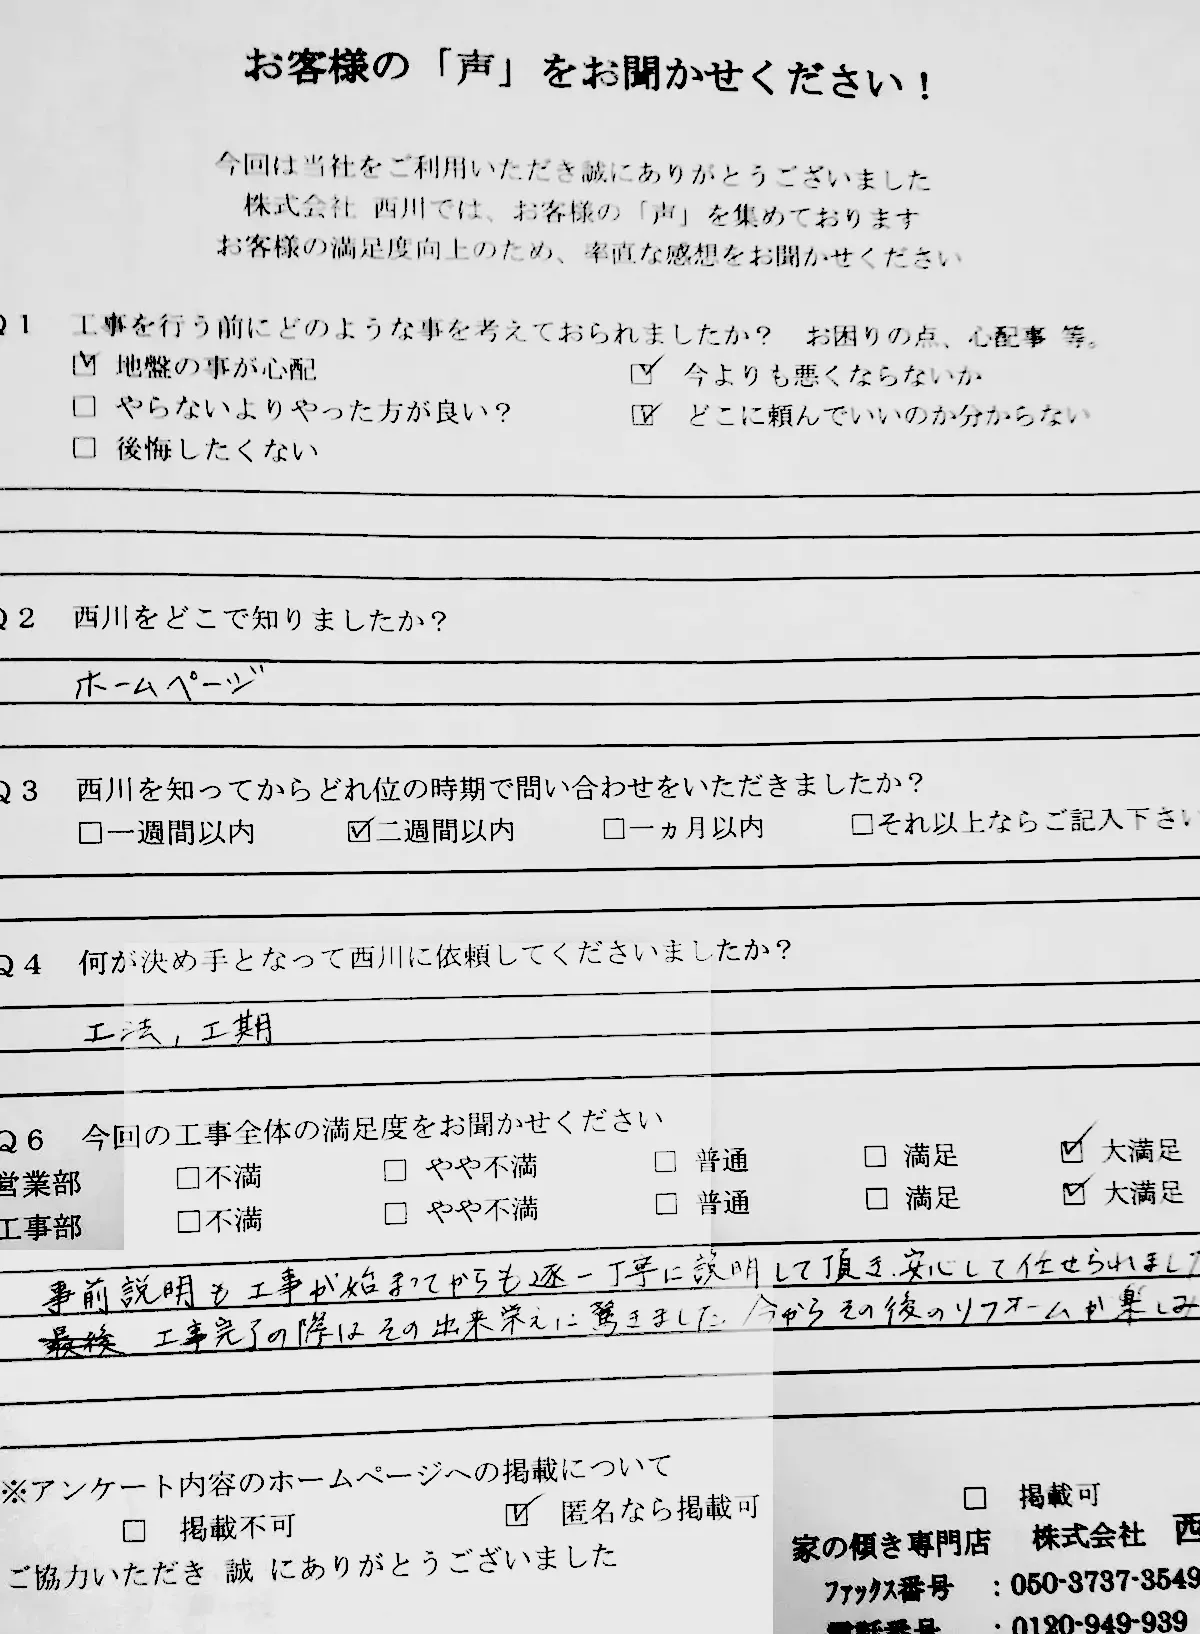 お客様の「声」をお聞かせください！
今回は当社をご利用いただき誠にありがとうございました
株式会社 西川では、お客様の「声」を集めております
お客様の満足度向上のため、率直な感想をお聞かせください
Q1 工事を行う前にどのような事を考えておられましたか？ お困りの点、心配事 等。
☑ 地盤の事が心配 ☑ 今よりも悪くならないか
□ やらないよりやった方が良い？ ☑ どこに頼んでいいのか分からない
□ 後悔したくない
Q2 西川をどこで知りましたか？
ホームページ
Q3 西川を知ってからどれ位の時期で問い合わせをいただきましたか？
□一週間以内 ☑二週間以内 □一ヵ月以内 □それ以上ならご記入下さい
Q4 何が決め手となって西川に依頼してくださいましたか？
工法，工期
Q6 今回の工事全体の満足度をお聞かせください
営業部 □不満 □ やや不満 □ 普通 □ 満足 ☑ 大満足
工事部 □不満 □ やや不満 □ 普通 □ 満足 ☑ 大満足
事前説明も工事が始まってからも逐一丁寧に説明して頂き、安心して任せられました
工事完了の際はその出来栄えに驚きました。今からその後のリフォームが楽しみ
※アンケート内容のホームページへの掲載について
□ 掲載不可 ☑ 匿名なら掲載可 □ 掲載可
ご協力いただき 誠 にありがとうございました
家の傾き専門店 株式会社 西
ファックス番号 ：050-3737-3549
電話番号 ：0120-949-939